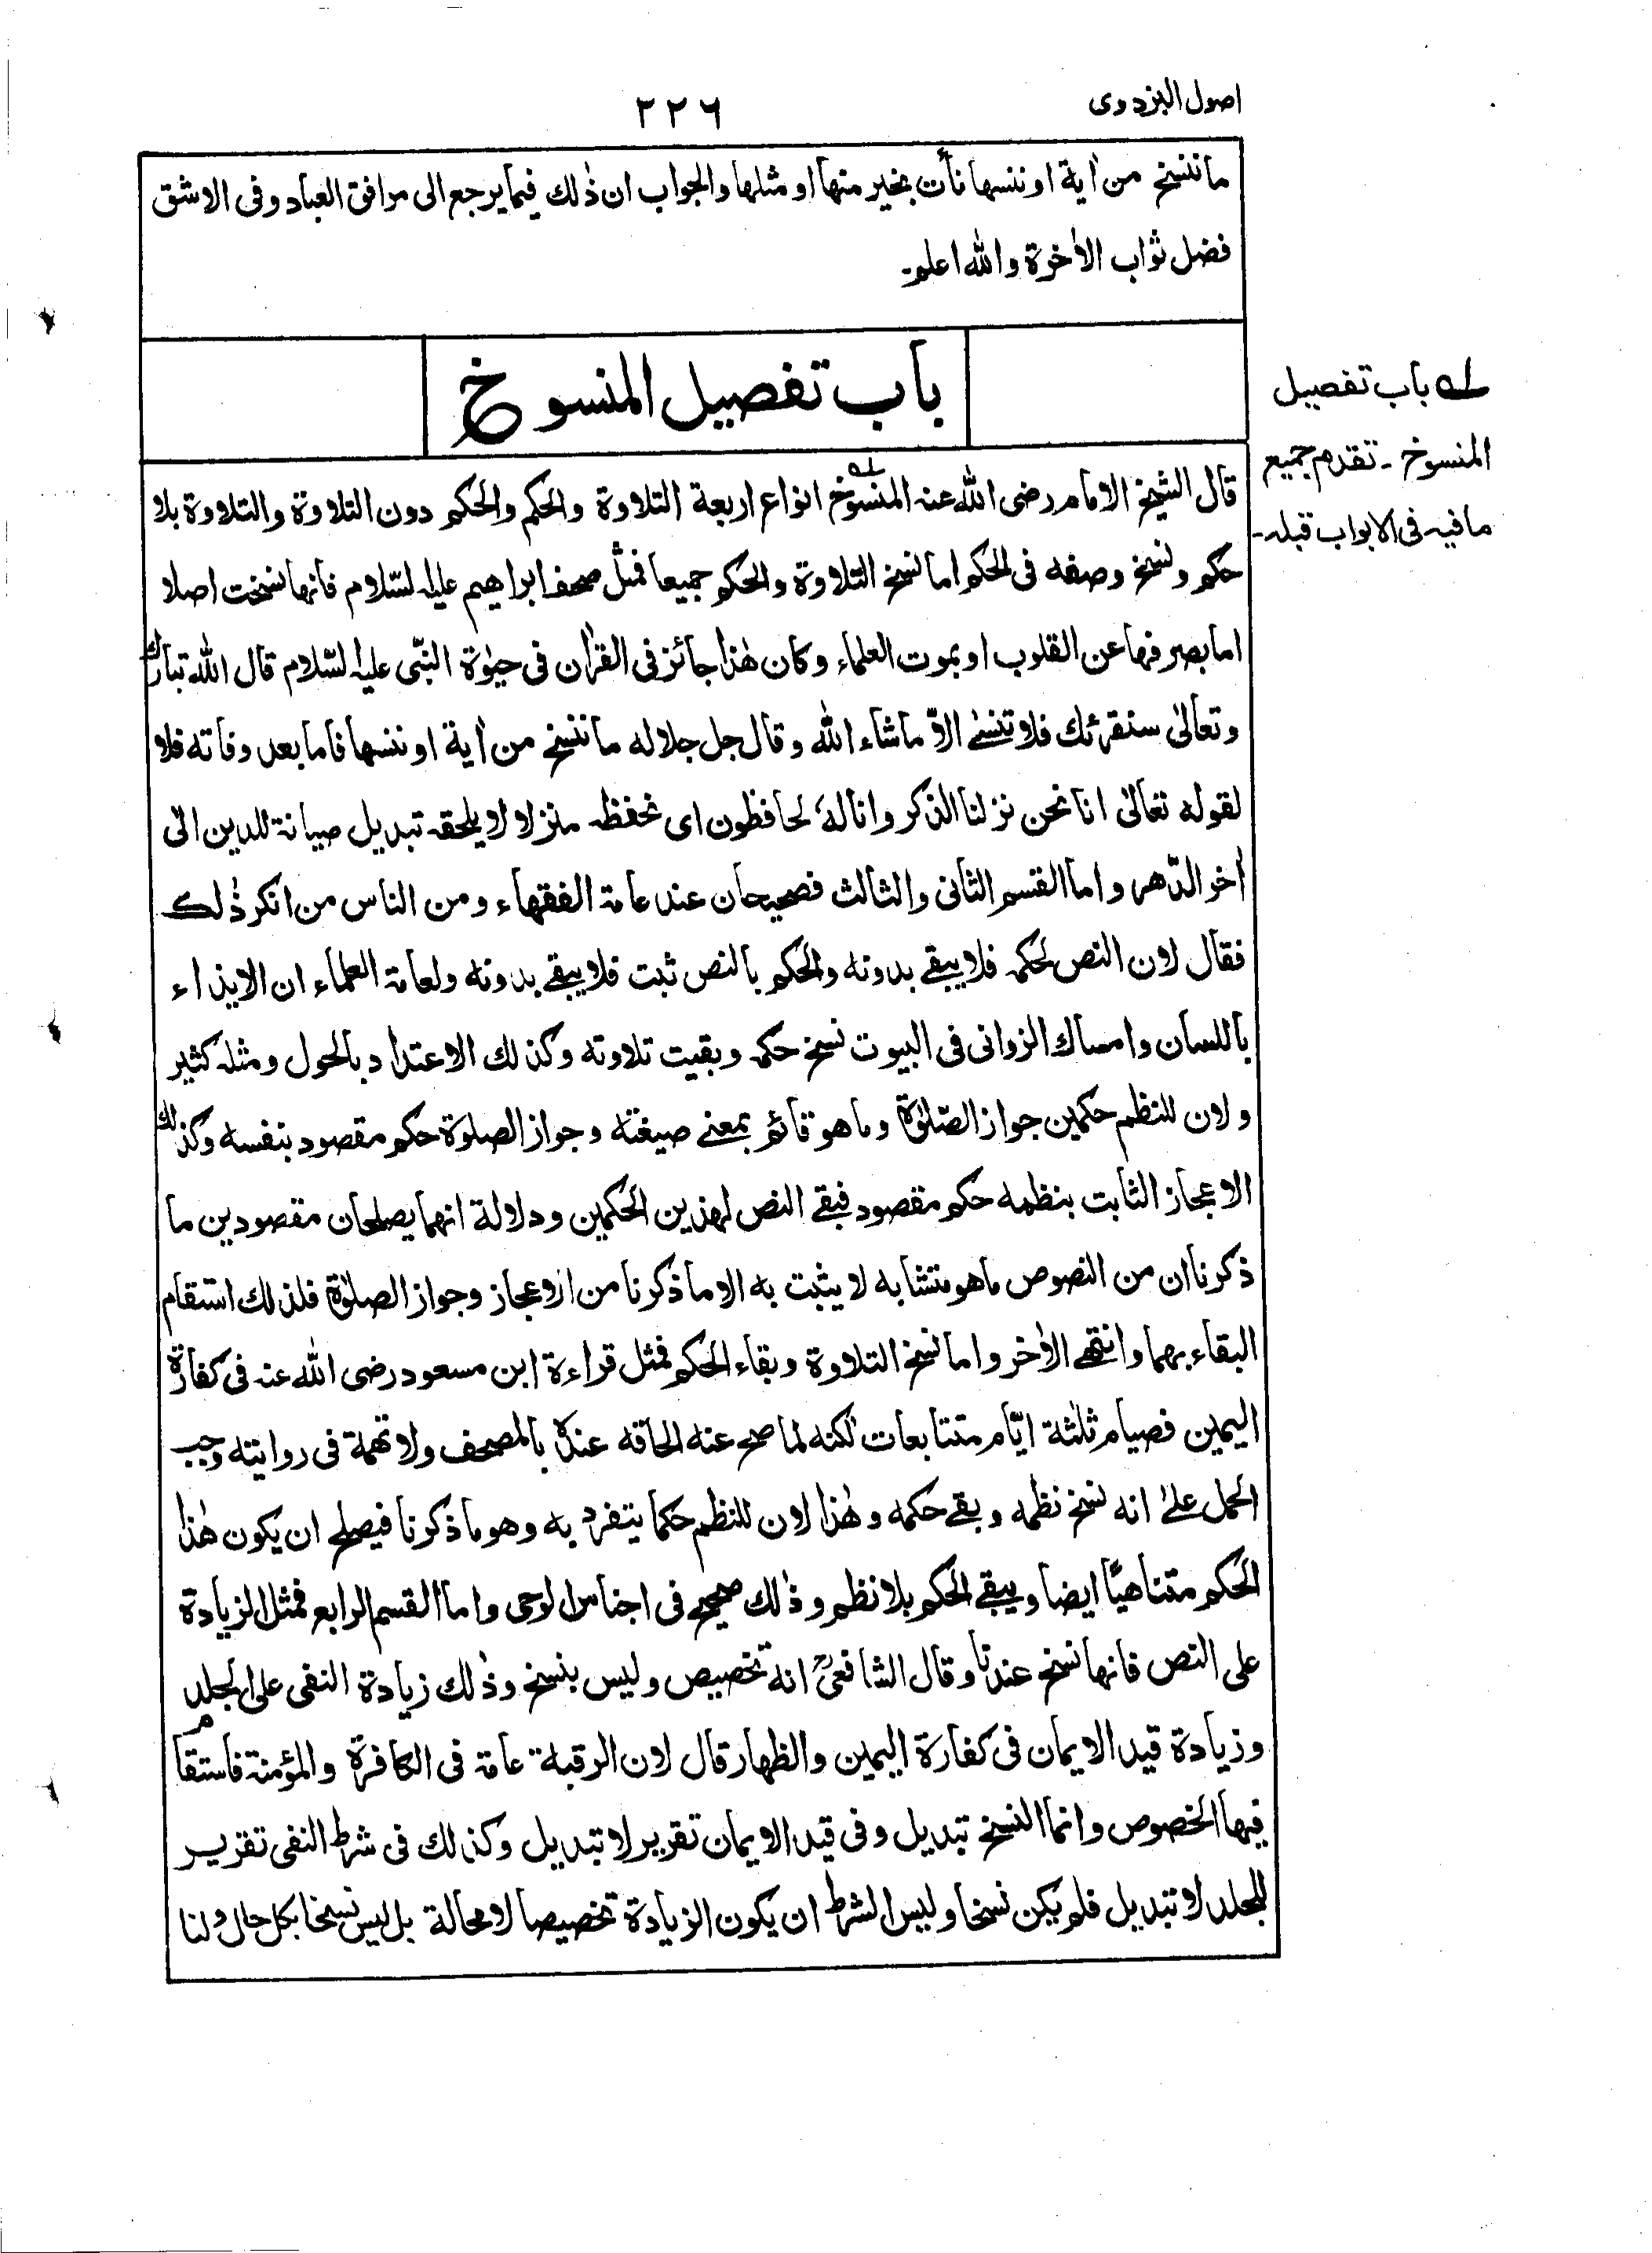 اصول البزدوی
٢٢٦
ما ننسخ من اٰية او ننسها نأت بخير منها او مثلها والجواب ان ذٰلك فيما يرجع الى مرافق العباد وفى الاشق
فضل ثواب الاٰخرة والله اعلم۔
باب تفصيل المنسوخ
قال الشيخ الامام رضى الله عنه المنسوخ انواع اربعة التلاوة والحكم والحكم دون التلاوة والتلاوة بلا
حكم ونسخ وصفه فى الحكم اما نسخ التلاوة والحكم جميعا فمثل صحف ابراهيم عليه السّلام فانها نسخت اصلا
اما بصرفها عن القلوب او بموت العلماء وكان هٰذا جائز فى القراٰن فى حيٰوة النبّى عليه السّلام قال الله تبارك
وتعالىٰ سنقرئك فلا تنسىٰ الاّ ما شاء الله وقال جل جلاله ما ننسخ من اٰية او ننسها فاما بعد وفاته فلا
لقوله تعالىٰ انا نحن نزلنا الذكر وانا لهٗ لحافظون اى نحفظه منزلا لا يلحقه تبديل صيانة للدين الى
اٰخر الدّهر واما القسم الثانى والثالث فصحيحان عند عامة الفقهاء ومن الناس من انكر ذٰلك
فقال لان النص لحكمه فلا يبقے بدونه والحكم بالنص ثبت فلا يبقے بدونه ولعامة العلماء ان الايذاء
باللسان وامساك الزوانى فى البيوت نسخ حكمه وبقيت تلاوته وكذلك الاعتداد بالحول ومثله كثير
ولان للنظم حكمين جواز الصّلوٰة وما هو قائم بمعنے صيغته وجواز الصلوة حكم مقصود بنفسه وكذلك
الاعجاز الثابت بنظمه حكم مقصود فبقے النص لهذين الحكمين ودلالة انهما يصلحان مقصودين ما
ذكرنا ان من النصوص ما هو متشابه لا يثبت به الا ما ذكرنا من الاعجاز وجواز الصلوٰة فلذلك استقام
البقاء بهما وانتهے الاٰخر واما نسخ التلاوة وبقاء الحكم فمثل قراءة ابن مسعود رضى الله عنه فى كفارة
اليمين فصيام ثلٰثة ايّام متتابعات لٰكنه لما صح عنه الحاقه عندهٗ بالمصحف ولا تهمة فى روايته وجب
الحمل علےٰ انه نسخ نظمه وبقے حكمه وهٰذا لان للنظم حكما يتفرد به وهو ما ذكرنا فيصلح ان يكون هٰذا
الحكم متناهيًا ايضا ويبقے الحكم بلا نظم وذٰلك صحيح فى اجناس الوحى واما القسم الرابع فمثل الزيادة
على النص فانها نسخ عندنا وقال الشافعىؒ انه تخصيص وليس بنسخ وذٰلك زيادة النفى على الجلد
وزيادة قيد الايمان فى كفارة اليمين والظهار قال لان الرقبة عامة فى الكافرة والمؤمنة فاستقام
فيها الخصوص وانما النسخ تبديل وفى قيد الايمان تقرير لا تبديل وكذلك فى شرط النفى تقرير
للجلد لا تبديل فلم يكن نسخا وليس الشرط ان يكون الزيادة تخصيصا لا محالة بل ليس نسخا بكل حال ولنا
لـه باب تفصيل
المنسوخ ۔ تقدم جميع
ما فيه فى الابواب قبله۔